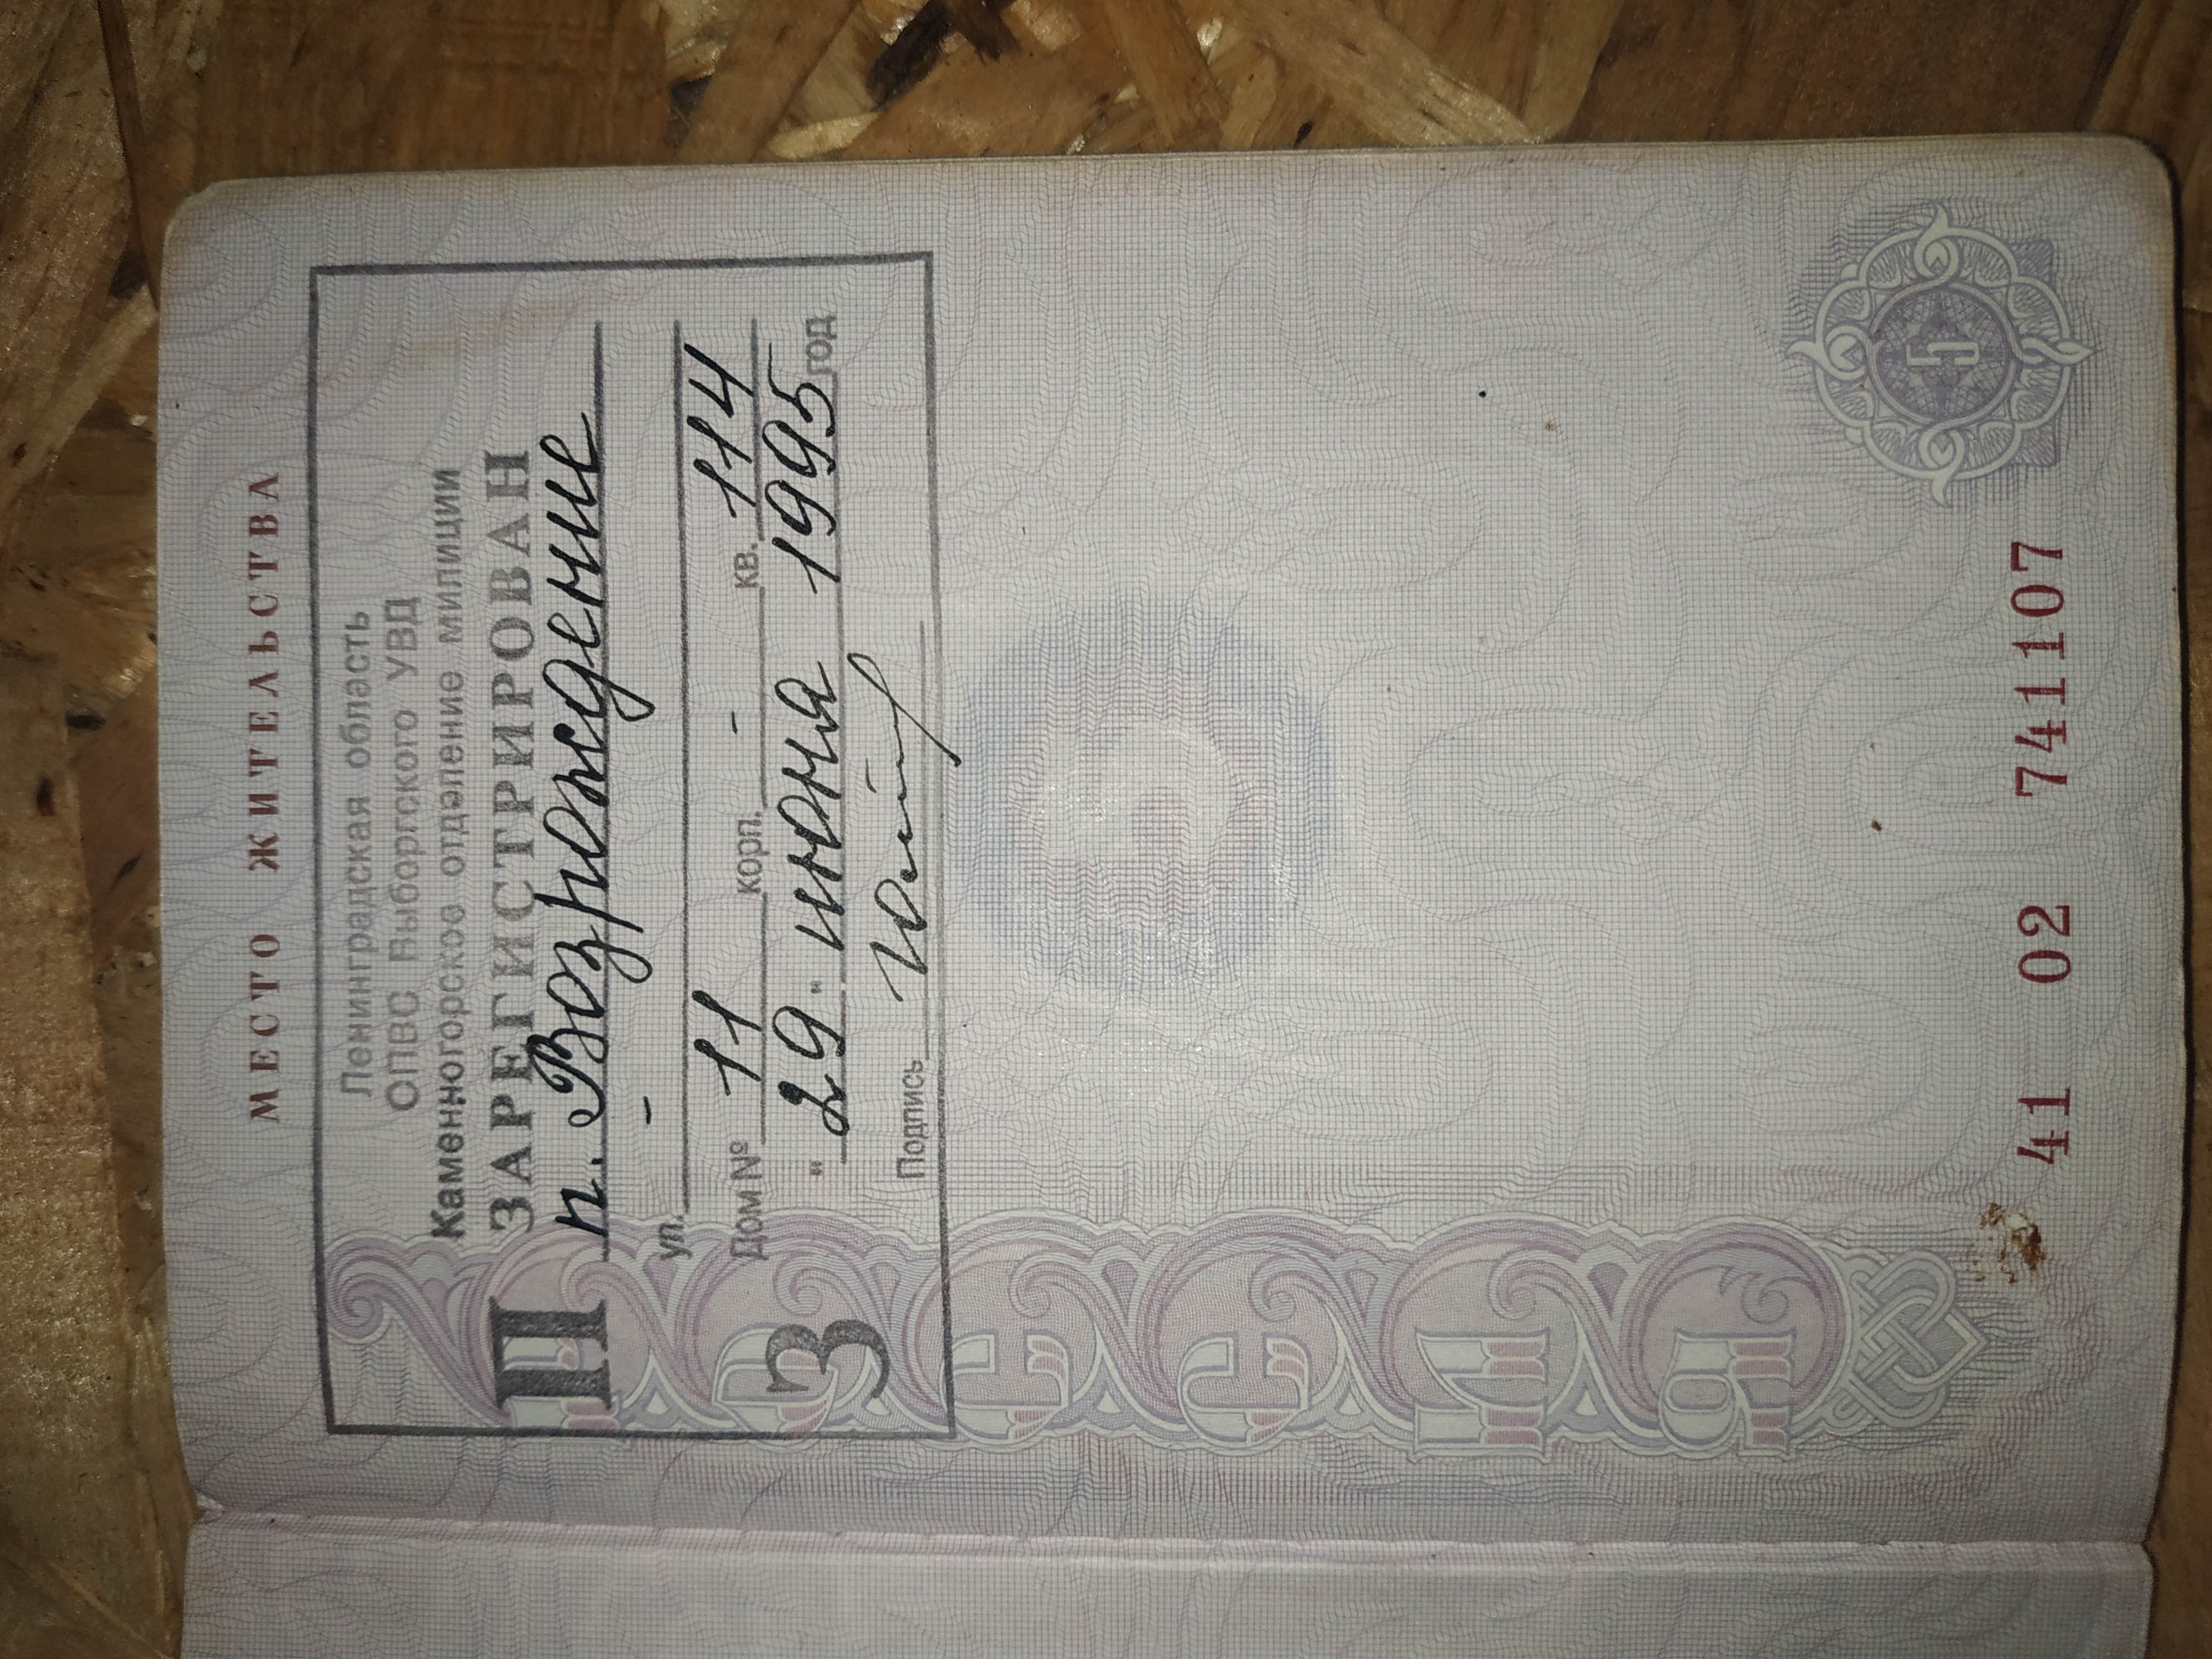 МЕСТО ЖИТЕЛЬСТВА
Ленинградская область
ОПВС Выборгского УВД
Каменногорское отделение милиции
П ЗАРЕГИСТРИРОВАН
п. Возрождение
ул. -
Дом № 11 корп. - кв. 114
З "29" июня 1995 год
Подпись
РОССИЯ
5
41 02 741107